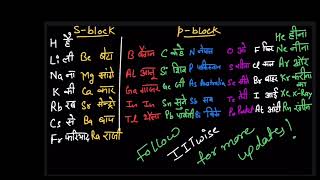 S-block p-block
H है He हीना
Li ली Be बेटा B बैगन C कहे N नेपाल O ओ F फिर Ne नीना
Na ना Mg मांगे Al आलू Si सिर P पाकिस्तान S Cl कल Ar और
K की Ca कार Ga गाजर Ge जी As Australia Se Br बाहर Kr करीना
Rb रब Sr In In Sn Sb सब Te I आई Xe X-Ray
Cs से Ba बाप Tl थैला Pb Bi Po At Rn
Fr फरियाद Ra राजी
Follow IITwise for more updates!